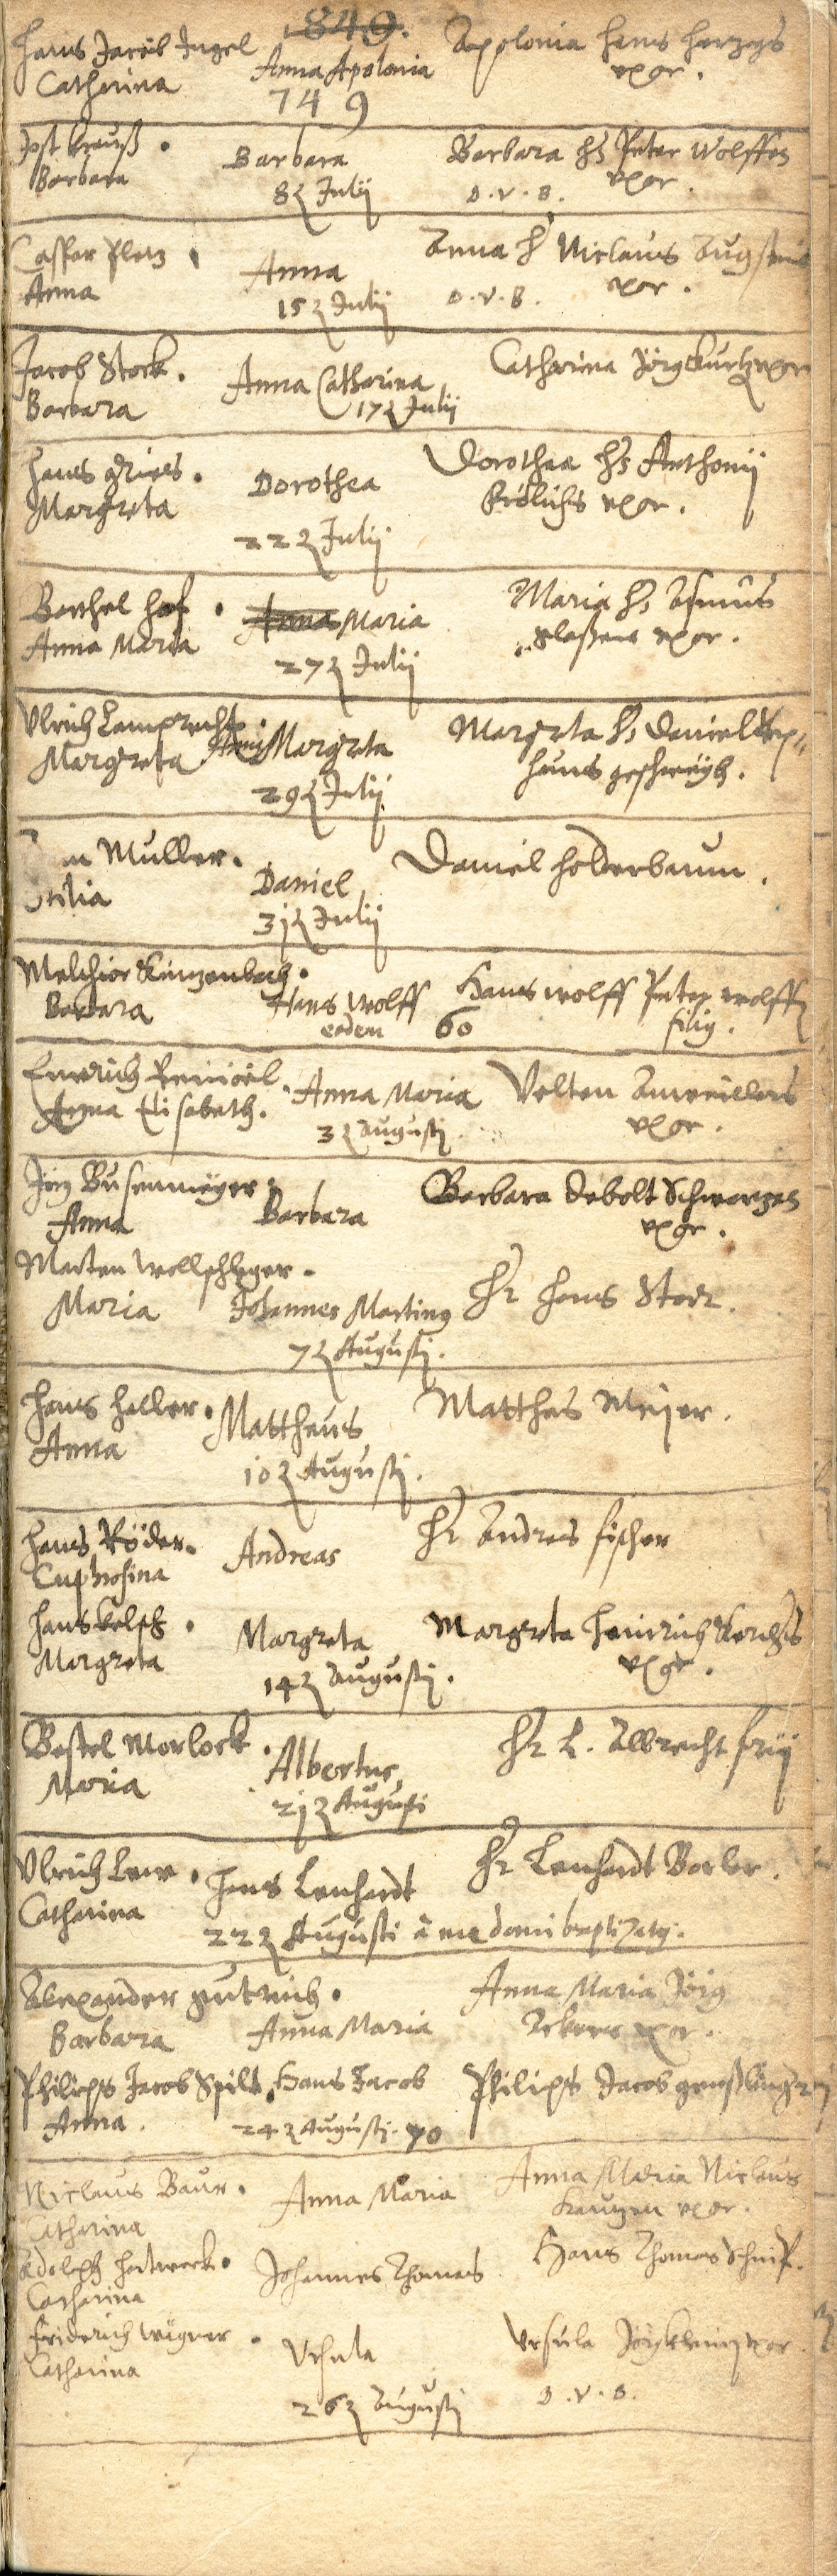 1849.
Hans Jacob Ingel
Catharina
Anna Apolonia
749
Apolonia Hans Herzogs
vxor.
Jost Krauß
Barbara
Barbara
8 Julij
Barbara Hs Peter Wolffen
vxor.
D.V.B.
Casper Pletz
Anna
Anna
15 Julij
Anna H Niclaus
vxor.
D.V.B.
Jacob Stock.
Barbara
Anna Catharina
17 Julij
Catharina Jörg Kurtz vxor
Hans Gries.
Margreta
Dorothea
22 Julij
Dorothea Hs Anthonij
Frölichs vxor.
Barthel Hof.
Anna Maria
Anna Maria
27 Julij
Maria Hs Asmus
Glaßens vxor.
Ulrich Lamprecht.
Margreta
Anna Margreta
29 Julij
Margreta Hs Daniel
Hans geschweyh.
Muller.
Daniel
31 Julij
Daniel Holderbaum.
Melchior
Barbara
Hans Wolff
eoden 60
Hans Wolff Peter Wolffen
filius.
Anna Elisabeth.
Anna Maria
3 Augusti.
Velten Anweillers
vxor.
Jörg Busenmeyer.
Anna
Barbara
Barbara Debolt Schwarzen
vxor.
Marten Wollschleger.
Maria
Johannes Martinus
7 Augusti.
Hr Hans Stor
Hans Haller.
Anna
Mattheus
10 Augusti.
Matthes Meyer.
Hans Röder.
Euphrosina
Andreas
Hr Andres Fischer
Hans Kelsch.
Margreta
Margreta
14 Augusti.
Margreta Heinrich
vxor.
Bastel Morlock.
Maria
Albertus
21 Augusti
Hr L. Albrecht Frij
Ulrich Lew.
Catharina
Hans Lenhardt
22 Augusti à me domi baptizatus.
Hr Lenhardt Borler.
Alexander Gutrich.
Barbara
Anna Maria
Anna Maria Jörg
Ackers vxor.
Philips Jacob Spilt.
Anna.
Hans Jacob
24 Augusti. 70
Philips Jacob
Niclaus Baur.
Catharina
Anna Maria
Anna Maria Niclaus
Kautzen vxor.
Adolph Hartweck.
Catharina
Johannes Thomas
Hans Thomas
Friderich Wagner.
Catharina
Ursula
26 Augusti
Ursula Jörg Klein vxor.
D.V.B.